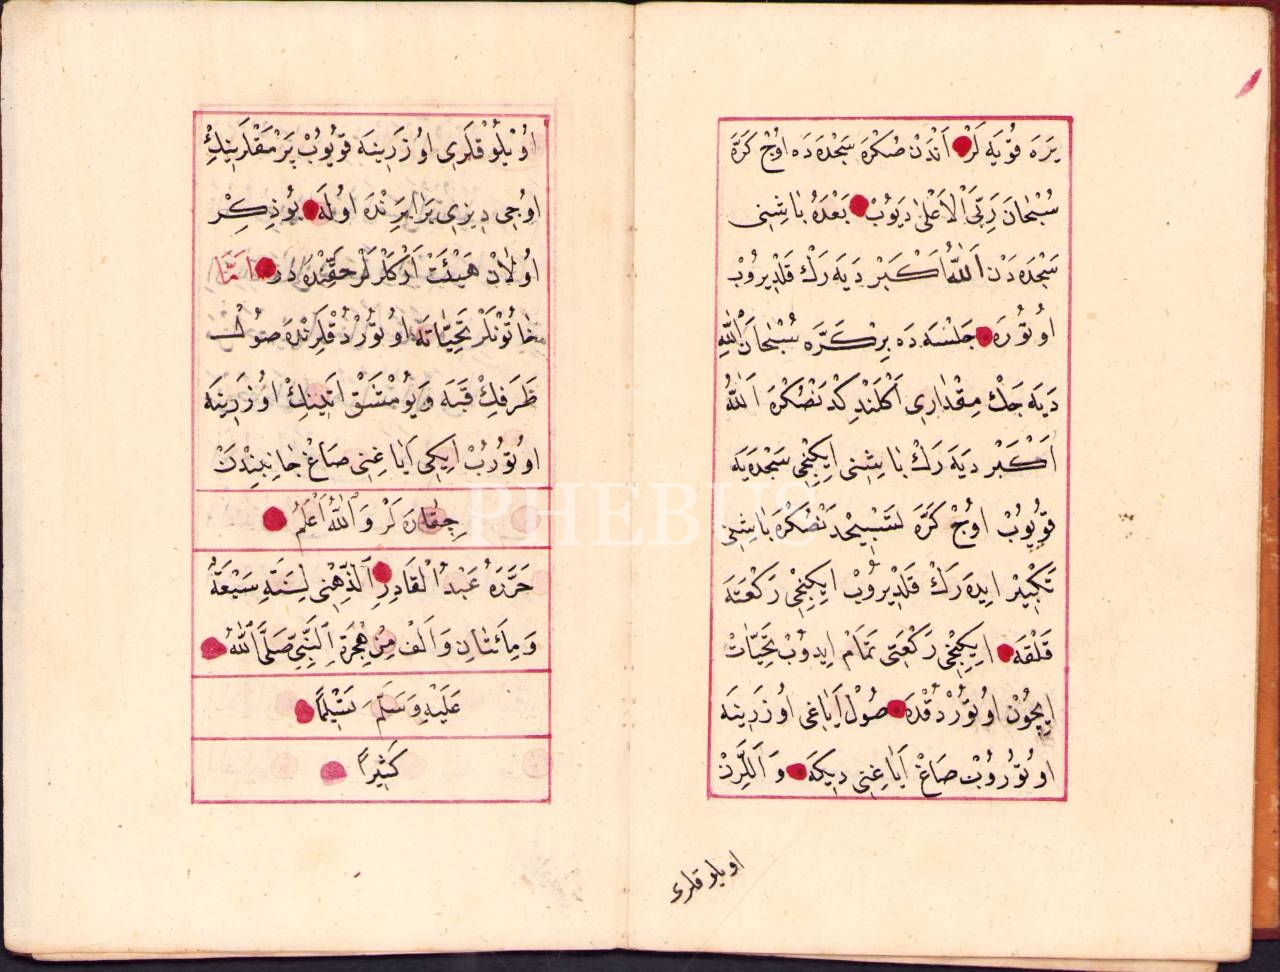 يَرَه قُويَه لَرْ اَنْدَنْ صُكْرَه سَجْدَه دَه اُوچْ كَرَّه
سُبْحَانَ رَبِّيَ الْاَعْلٰى دِيَوُبْ بَعْدَهُ بَاشِنِى
سَجْدَه دَنْ اَللّٰهُ اَكْبَرْ دِيَه رَكْ قَلْدِيرُوبْ
اوُتُورَه جَلْسَه دَه بِرْكَرَّه سُبْحَانَ اللّٰهِ
دِيَه جَكْ مِقْدَارِى اَكْلَنْدِكْدَنْصُكْرَه اَللّٰهُ
اَكْبَرْ دِيَه رَكْ بَاشِنِى اِيكِنْجِى سَجْدَه يَه
قُويُوبْ اُوچْ كَرَّه تَسْبِيحْدَنْصُكْرَه بَاشِنِى
تَكْبِيرْ ايدَه رَكْ قَلْدِيرُوبْ اِيكِنْجِى رَكْعَتَه
قَلْقَه اِيكِنْجِى رَكْعَتِى تَمَامْ ايدُوبْ تَحِيَّاتْ
اِيچُونْ اوُتُورْدُقْدَه صُولْ اَيَاغِى اُوزَرِينَه
اوُتُورُوبْ صَاغْ اَيَاغِنِى دِيكَه وَ اَللَّرِنْ
اويلوقلرى
اُويْلُوقْلَرِى اُوزَرِينَه قُويُوبْ پَرْمَقْلَرِينِكْ
اوُجِى دِيزِى بَرَابَرِنْدَه اوُلَه بُو ذِكِرْ
اوُلَانْ هَيْئَتْ اَرْكَكْلَرْ حَقِّنْدَه دِرْ اَمَّا
خَاتُونْلَرْ تَحِيَّاتَه اوُتُورْدُقْلَرِنْدَه صُولْ
طَرَفِكْ قَبَه وَ يُومْشَقْ اَتِينِكْ اوُزَرِينَه
اوُتُورُبْ اِيكِى اَيَاغِنِى صَاغْ جَانِبِنْدَنْ
چِقَارَه لَرْ وَاللّٰهُ اَعْلَمُ
حَرَّرَهُ عَبْدُ الْقَادِرِ الذِّهْنِى لِسَنَةِ سَبْعَةُ
وَمِاَئتَانِ وَاَلْف مِنْ هِجْرَةِ النَّبِيِّ صَلَّى اللّٰهُ
عَلَيْهِ وَسَلَّمَ تَسْلِيمًا
كَثِيرًا
PHEBUS